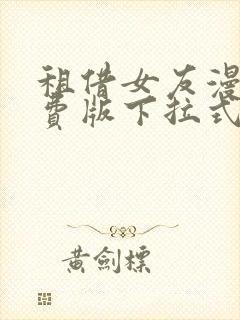 租借女友漫
费版下拉式
黄剑标